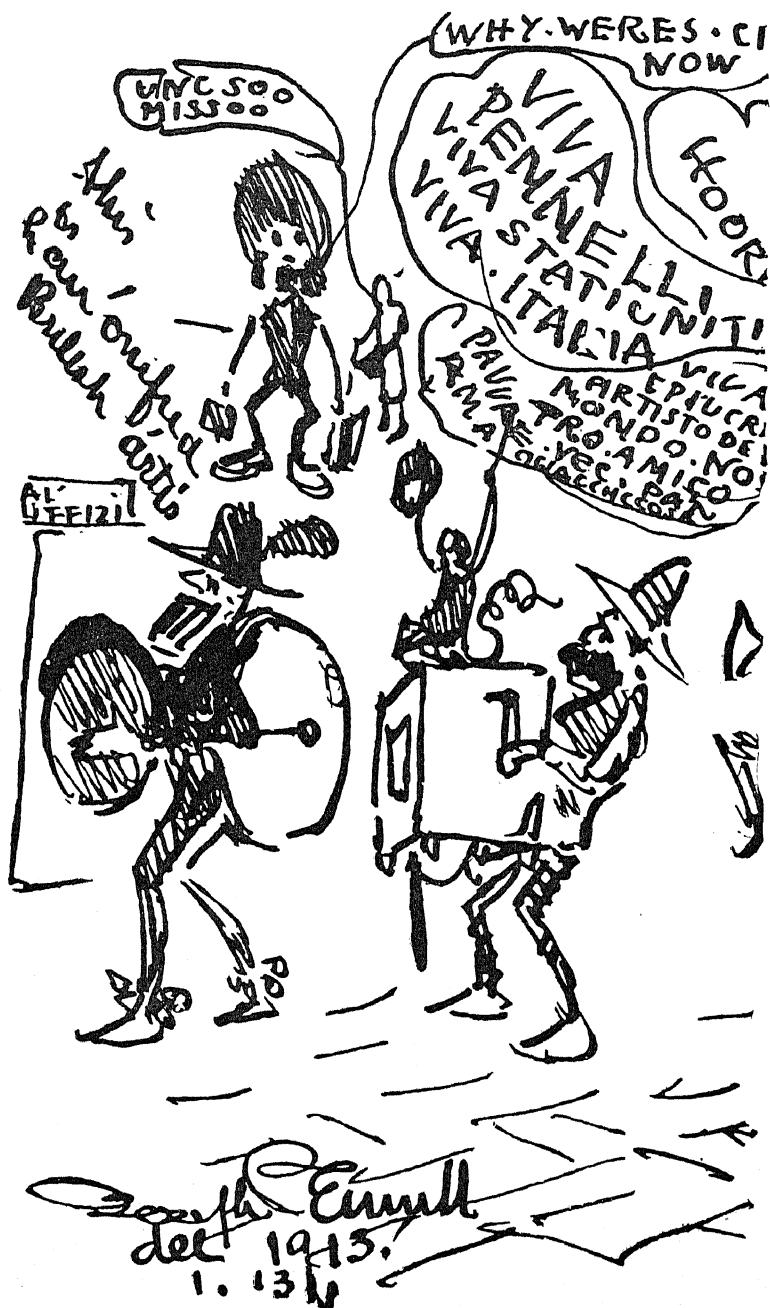 WHY.WERES.CI
NOW
UNC SOO
MISSOO
VIVA
PENNELLI
VIVA STATI UNITI
VIVA.ITALIA
HOOR
this
is
an
British artis
VIVA
EPIUCRI
ARTISTO DE
MONDO.NO
TRO.AMICO
VECI.PAN
AL'
UFFIZI
Joseph Pennell
del 1913.
1.13